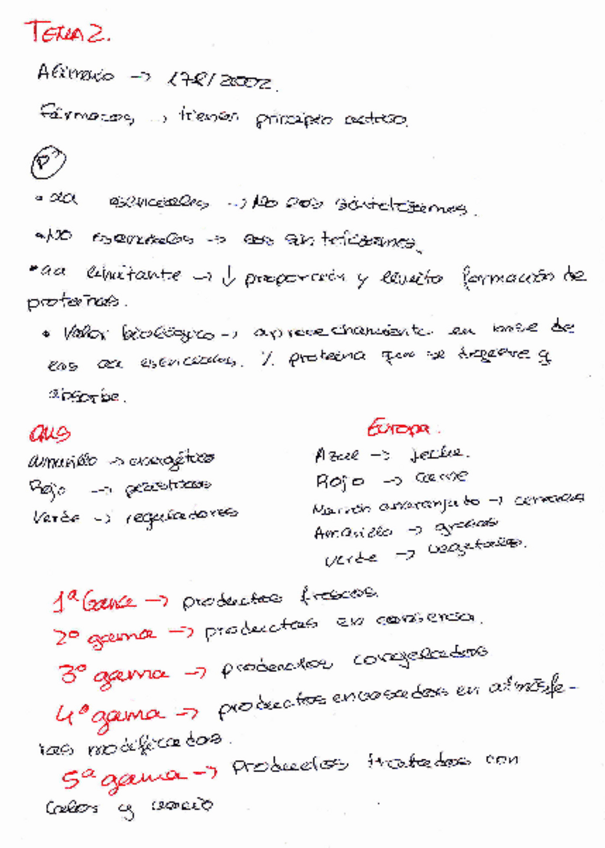 TEMA 2.
Alimento → 178/2002.
Fármacos → tienen principio activo.
P
• aa esenciales → No los sintetizamos.
• No esenciales → los sintetizamos.
• aa limitante → ↓ proporción y limita formación de
proteínas.
• Valor biológico → aprovechamiento en base de
los aa esenciales. % proteína que se digiere y
absorbe.
Amarillo → energético
Rojo → plásticos
Verde → reguladores
Europa.
Azul → leche.
Rojo → carne
Marrón anaranjado → cereales
Amarillo → grasas
Verde → vegetales.
1ª Gama → productos frescos.
2º gama → productos en conserva.
3º gama → productos congelados
4º gama → productos envasados en atmósfe-
ras modificadas.
5ª gama → Productos tratados con
calor y vacío